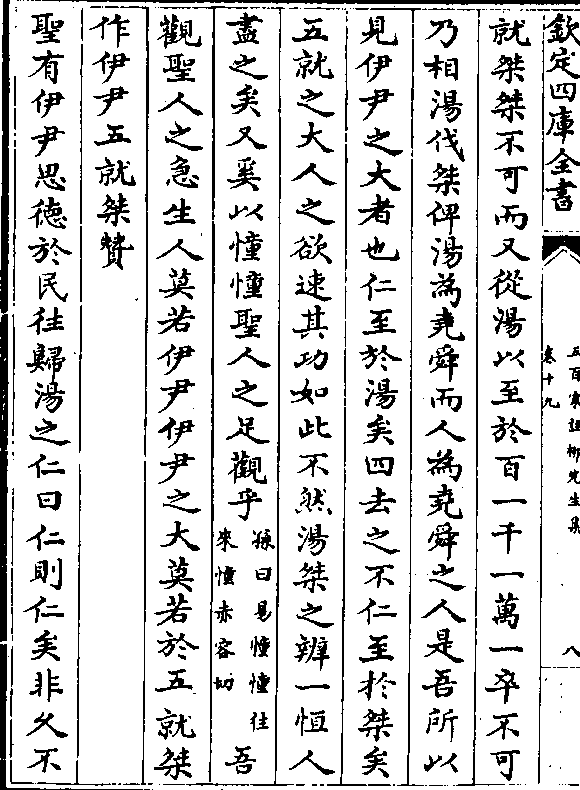 欽定四庫全書
五百家註柳先生集
卷十九
八
就桀桀不可而又從湯以至於百一千一萬一卒不可
乃相湯伐桀俾湯為堯舜而人為堯舜之人是吾所以
見伊尹之大者也仁至於湯矣四去之不仁至於桀矣
五就之大人之欲速其功如此不然湯桀之辨一恒人
盡之矣又奚以憧憧聖人之足觀乎
孫曰易憧憧往
來憧赤容切
吾
觀聖人之急生人莫若伊尹伊尹之大莫若於五就桀
作伊尹五就桀贊
聖有伊尹思德於民往歸湯之仁曰仁則仁矣非久不